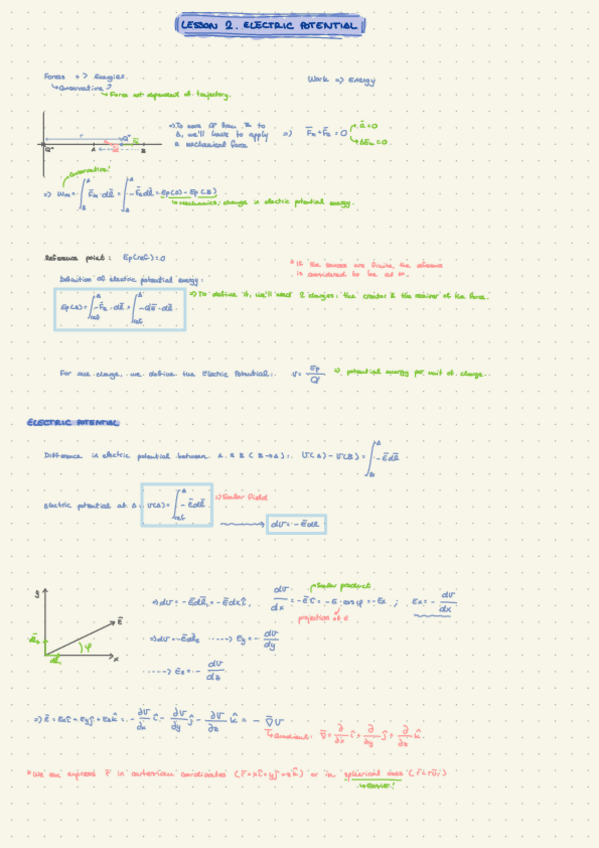 LESSON 2. ELECTRIC POTENTIAL
Forces => Energies. Work => Energy
↳ Conservative
↳ Force not dependent of trajectory.
=> To move Q' from B to
A, we'll have to apply => F̄m + F̄e = 0
a mechanical force
ā = 0
ΔEk = 0
r Q' A B
Conservative!
=> Wm = ∫_B^A F̄m · dl̄ = ∫_B^A -F̄e dl̄ = Ep(A) - Ep(B)
↳ mechanics: change in electric potential energy.
Reference point: Ep(ref.) = 0
* If the sources are finite, the reference
is considered to be at ∞.
Definition of electric potential energy:
Ep(A) = ∫_ref^A -F̄e · dl̄ = ∫_ref^A -Q'Ē · dl̄
=> To define it, we'll need 2 charges: the creator & the receiver of the force.
For one charge, we define the Electric Potential: V = Ep/Q' => potential energy per unit of charge.
ELECTRIC POTENTIAL
Difference in electric potential between A & B (B→A): V(A) - V(B) = ∫_B^A -Ē dl̄
Electric potential at A: V(A) = ∫_ref^A -Ē dl̄ => Scalar field
dV = -Ē dl̄
y Ē φ x
=> dV = -Ē dl̄₁ = -Ē dx î, dV/dx = -Ē î = -E · cos φ = -Ex ; Ex = - dV/dx
scalar product.
projection of E
=> dV = -Ē dl̄₂ ----> Ey = - dV/dy
----> Ez = - dV/dz
=> Ē = Ex î + Ey ĵ + Ez k̂ = - ∂V/∂x î - ∂V/∂y ĵ - ∂V/∂z k̂ = - ∇̄V
↳ Gradient: ∇̄ = ∂/∂x î + ∂/∂y ĵ + ∂/∂z k̂
* We can express r̄ in cartesian coordinates (r̄ = x î + y ĵ + z k̂) or in spherical ones (r̄ = r ûr)
↳ easier!